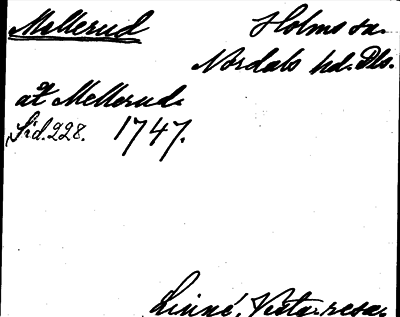 Mellerud Holms sn.
Nordals hd. Dls.
at Mellerud.
Sid. 228. 1747.
Linné, Västg.resa,